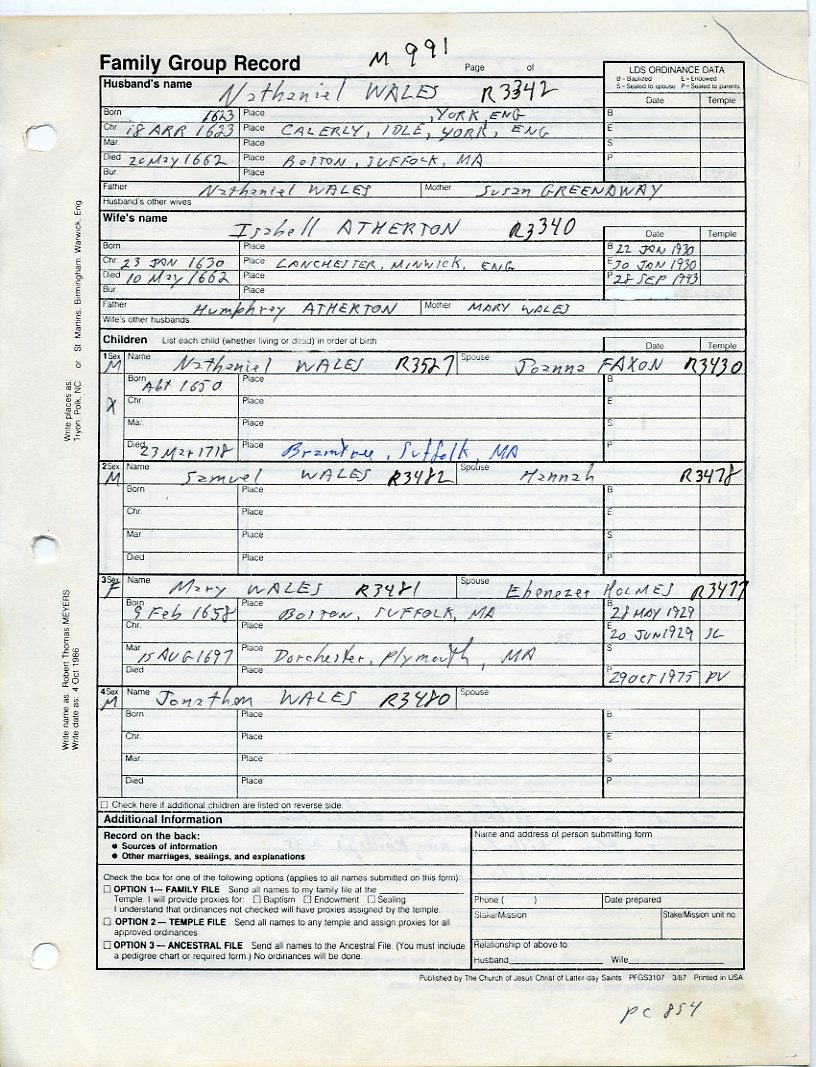 M 991
Family Group Record
Page of
Husband's name
Nathaniel WALES R3342
LDS ORDINANCE DATA
B = Baptized E = Endowed
S = Sealed to spouse P = Sealed to parents
Date Temple
Born 1623 Place , YORK, ENG B
Chr. 18 APR 1623 Place CALERLY, IDLE, YORK, ENG E
Mar. Place S
Died 20 May 1662 Place BOSTON, SUFFOLK, MA P
Bur. Place
Father Nathaniel WALES Mother Susan GREENAWAY
Husband's other wives
Wife's name
Isabell ATHERTON R3340
Date Temple
Born Place B 22 JAN 1930
Chr. 23 JAN 1630 Place LANCHESTER, MINWICK, ENG E 30 JAN 1930
Died 10 May 1662 Place P 28 SEP 1943
Bur. Place
Father Humphrey ATHERTON Mother MARY WALES
Wife's other husbands
Children List each child (whether living or dead) in order of birth
Date Temple
1 Sex M Name Nathaniel WALES R3527 Spouse Joanna FAXON R3430
Born Abt 1650 Place B
X
Chr. Place E
Mar. Place S
Died 23 Mar 1718 Place Braintree, Suffolk, MA P
2 Sex M Name Samuel WALES R3482 Spouse Hannah R3478
Born Place B
Chr. Place E
Mar. Place S
Died Place P
3 Sex F Name Mary WALES R3481 Spouse Ebenezer HOLMES R3477
Born 9 Feb 1658 Place BOSTON, SUFFOLK, MA B 28 MAY 1929
Chr. Place E 20 JUN 1929 SL
Mar. 15 AUG 1697 Place Dorchester, Plymouth, MA S
Died Place P 29 Oct 1975 PV
4 Sex M Name Jonathon WALES R3480 Spouse
Born Place B
Chr. Place E
Mar. Place S
Died Place P
☐ Check here if additional children are listed on reverse side.
Additional Information
Record on the back:
● Sources of information
● Other marriages, sealings, and explanations
Check the box for one of the following options (applies to all names submitted on this form):
☐ OPTION 1— FAMILY FILE Send all names to my family file at the
Temple. I will provide proxies for: ☐ Baptism ☐ Endowment ☐ Sealing
I understand that ordinances not checked will have proxies assigned by the temple.
☐ OPTION 2 — TEMPLE FILE Send all names to any temple and assign proxies for all
approved ordinances.
☐ OPTION 3 — ANCESTRAL FILE Send all names to the Ancestral File. (You must include
a pedigree chart or required form.) No ordinances will be done.
Name and address of person submitting form
Phone ( ) Date prepared
Stake/Mission Stake/Mission unit no.
Relationship of above to:
Husband Wife
Published by The Church of Jesus Christ of Latter-day Saints PFGS3107 3/87 Printed in USA
PC 854
Write places as: Tryon, Polk, NC or St. Martins, Birmingham, Warwick, Eng
Write name as: Robert Thomas MEYERS
Write date as: 4 Oct 1986